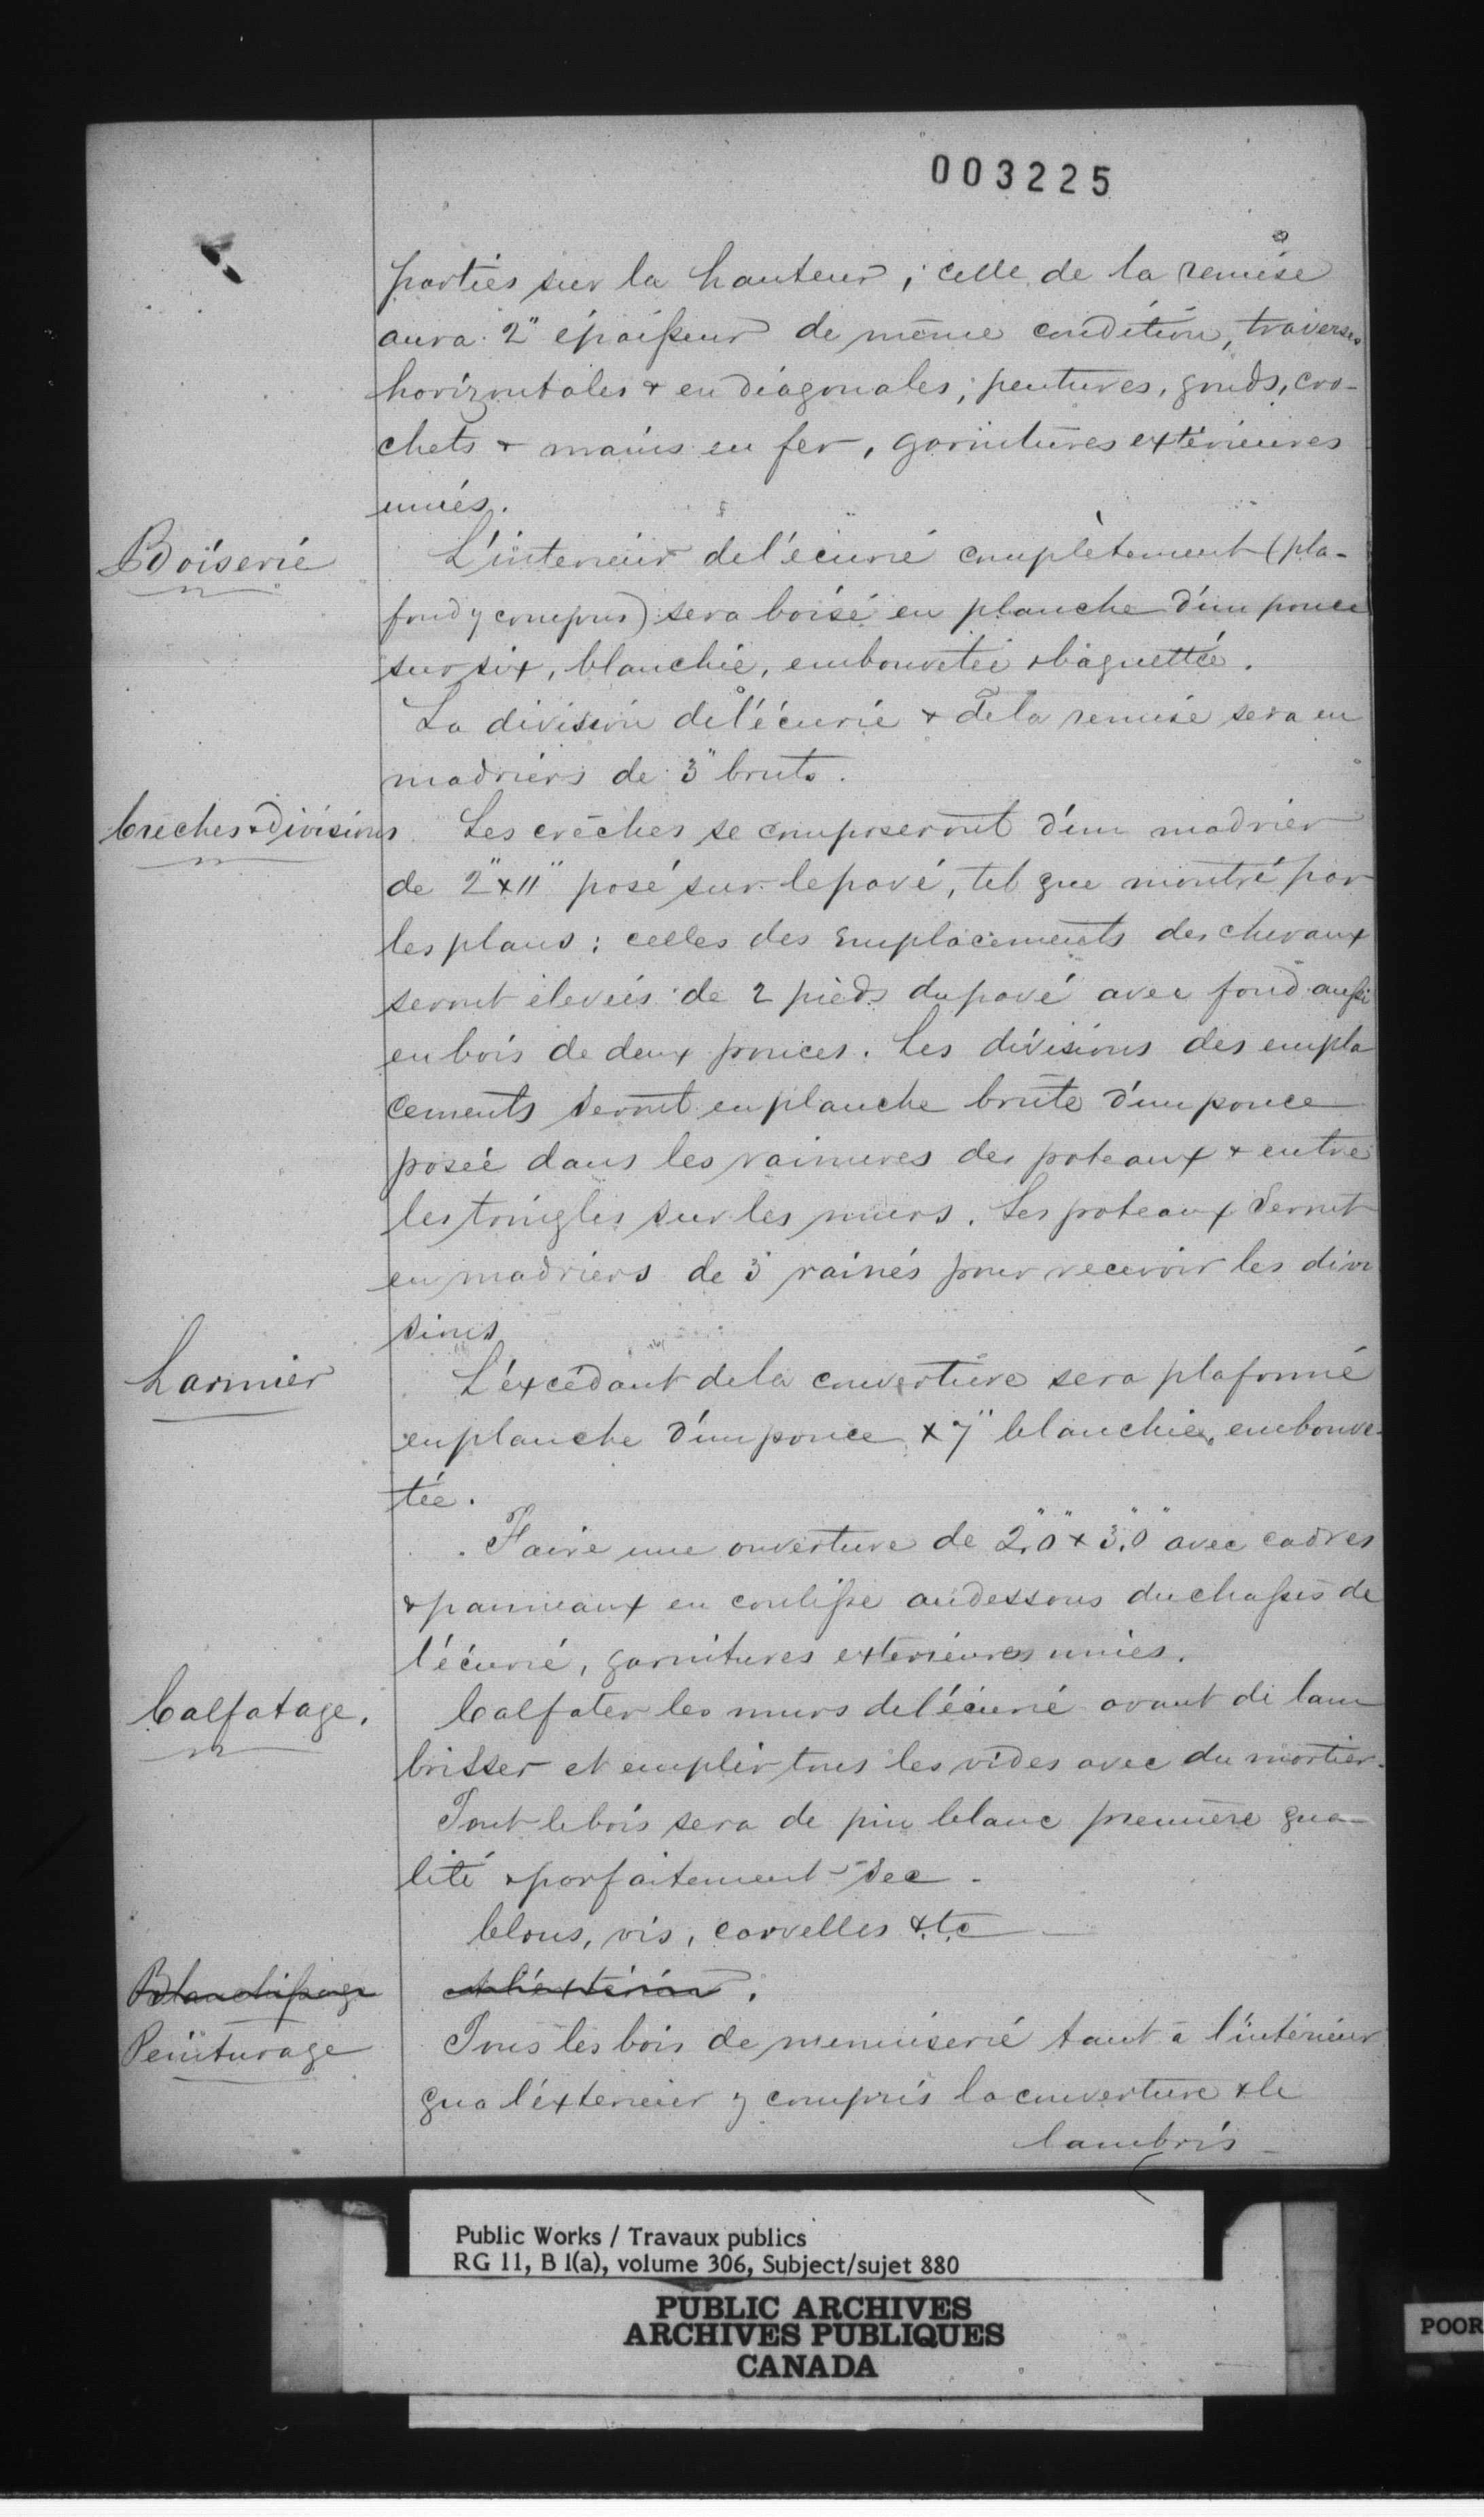 003225
parties sur la hauteur; celle de la remise
aura 2" épaisseur de même condition, traverses
horizontales & en diagonales; pentures, gonds, cro-
chets & mains en fer, garnitures extérieures
unies.
Boiserie
L'intérieur de l'écurie complètement (pla-
fond y compris) sera boisé en planche d'un pouce
sur six, blanchie, embouvetée & baguettée.
La division de l'écurie & de la remise sera en
madriers de 3" bruts.
Creches & Divisions
Les crèches se composeront d'un madrier
de 2" x 11" posé sur le pavé, tel que montré par
les plans: celles des emplacements des chevaux
seront élevées de 2 pieds du pavé avec fond aussi
en bois de deux pouces. Les divisions des empla
cements seront en planche brute d'un pouce
posée dans les rainures des poteaux & entre
les tringles sur les murs. Les poteaux seront
en madriers de 3" rainés pour recevoir les divi
sions
Larmier
L'excédant de la couverture sera plafonné
en planche d'un pouce x 7" blanchie, embouve-
tée.
Faire une ouverture de 2".0" x 3".0" avec cadres
& panneaux en coulisse au dessous du chassis de
l'écurie, garnitures extérieures unies.
Calfatage.
Calfater les murs de l'écurie avant de lam
brisser et emplir tous les vides avec du mortier.
Tout le bois sera de pin blanc première qua-
lité & parfaitement sec.
Clous, vis, carvelles &tc
Blanchissage
et l'extérieur.
Peinturage
Tous les bois de menuiserie tant à l'intérieur
qua l'extérieur y compris la couverture & le
lambris
Public Works / Travaux publics
RG 11, B 1(a), volume 306, Subject/sujet 880
PUBLIC ARCHIVES
ARCHIVES PUBLIQUES
CANADA
POOR